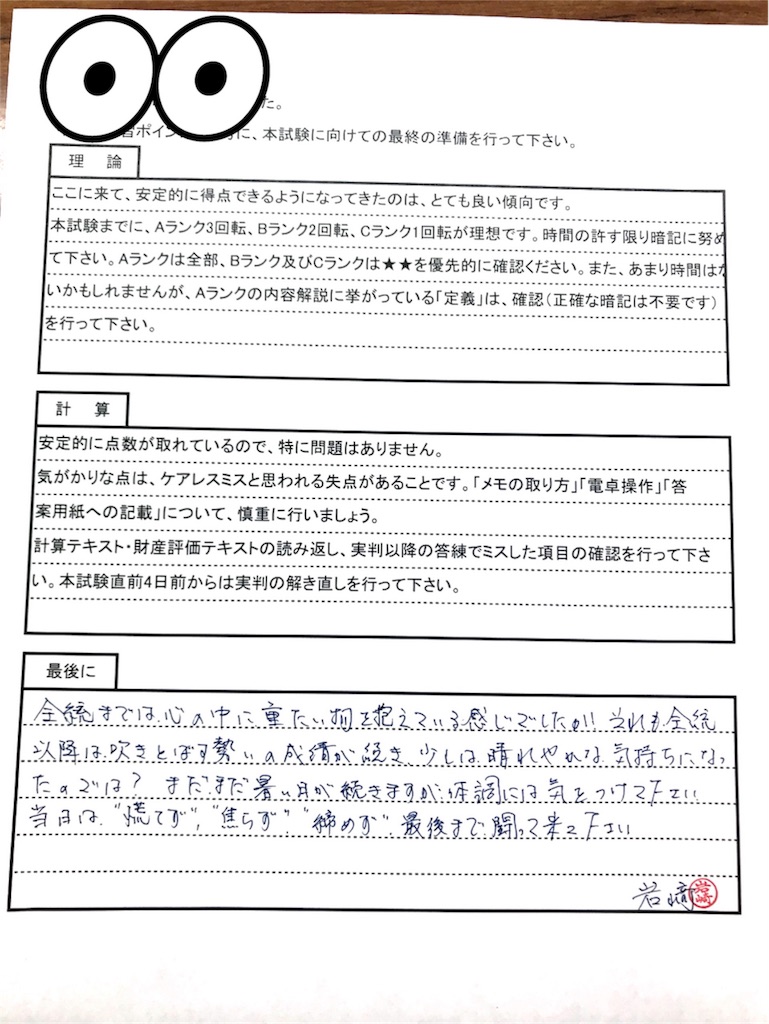 た。
習ポイン
に、本試験に向けての最終の準備を行って下さい。
理 論
ここに来て、安定的に得点できるようになってきたのは、とても良い傾向です。
本試験までに、Aランク3回転、Bランク2回転、Cランク1回転が理想です。時間の許す限り暗記に努め
て下さい。Aランクは全部、Bランク及びCランクは★★を優先的に確認ください。また、あまり時間はな
いかもしれませんが、Aランクの内容解説に挙がっている「定義」は、確認(正確な暗記は不要です)
を行って下さい。
計 算
安定的に点数が取れているので、特に問題はありません。
気がかりな点は、ケアレスミスと思われる失点があることです。「メモの取り方」「電卓操作」「答
案用紙への記載」について、慎重に行いましょう。
計算テキスト・財産評価テキストの読み返し、実判以降の答練でミスした項目の確認を行って下さ
い。本試験直前4日前からは実判の解き直しを行って下さい。
最後に
全統までは心の中に重たい物を抱えている感じでしたが!! 全統
以降は吹きとばす勢いの成績が続き、少しは晴れやかな気持ちになっ
たのでは? まだまだ暑い日が続きますが、体調には気をつけて下さい
当日は、"慌てず"、"焦らず"、"締めず" 最後まで闘って来て下さい
岩﨑
岩崎